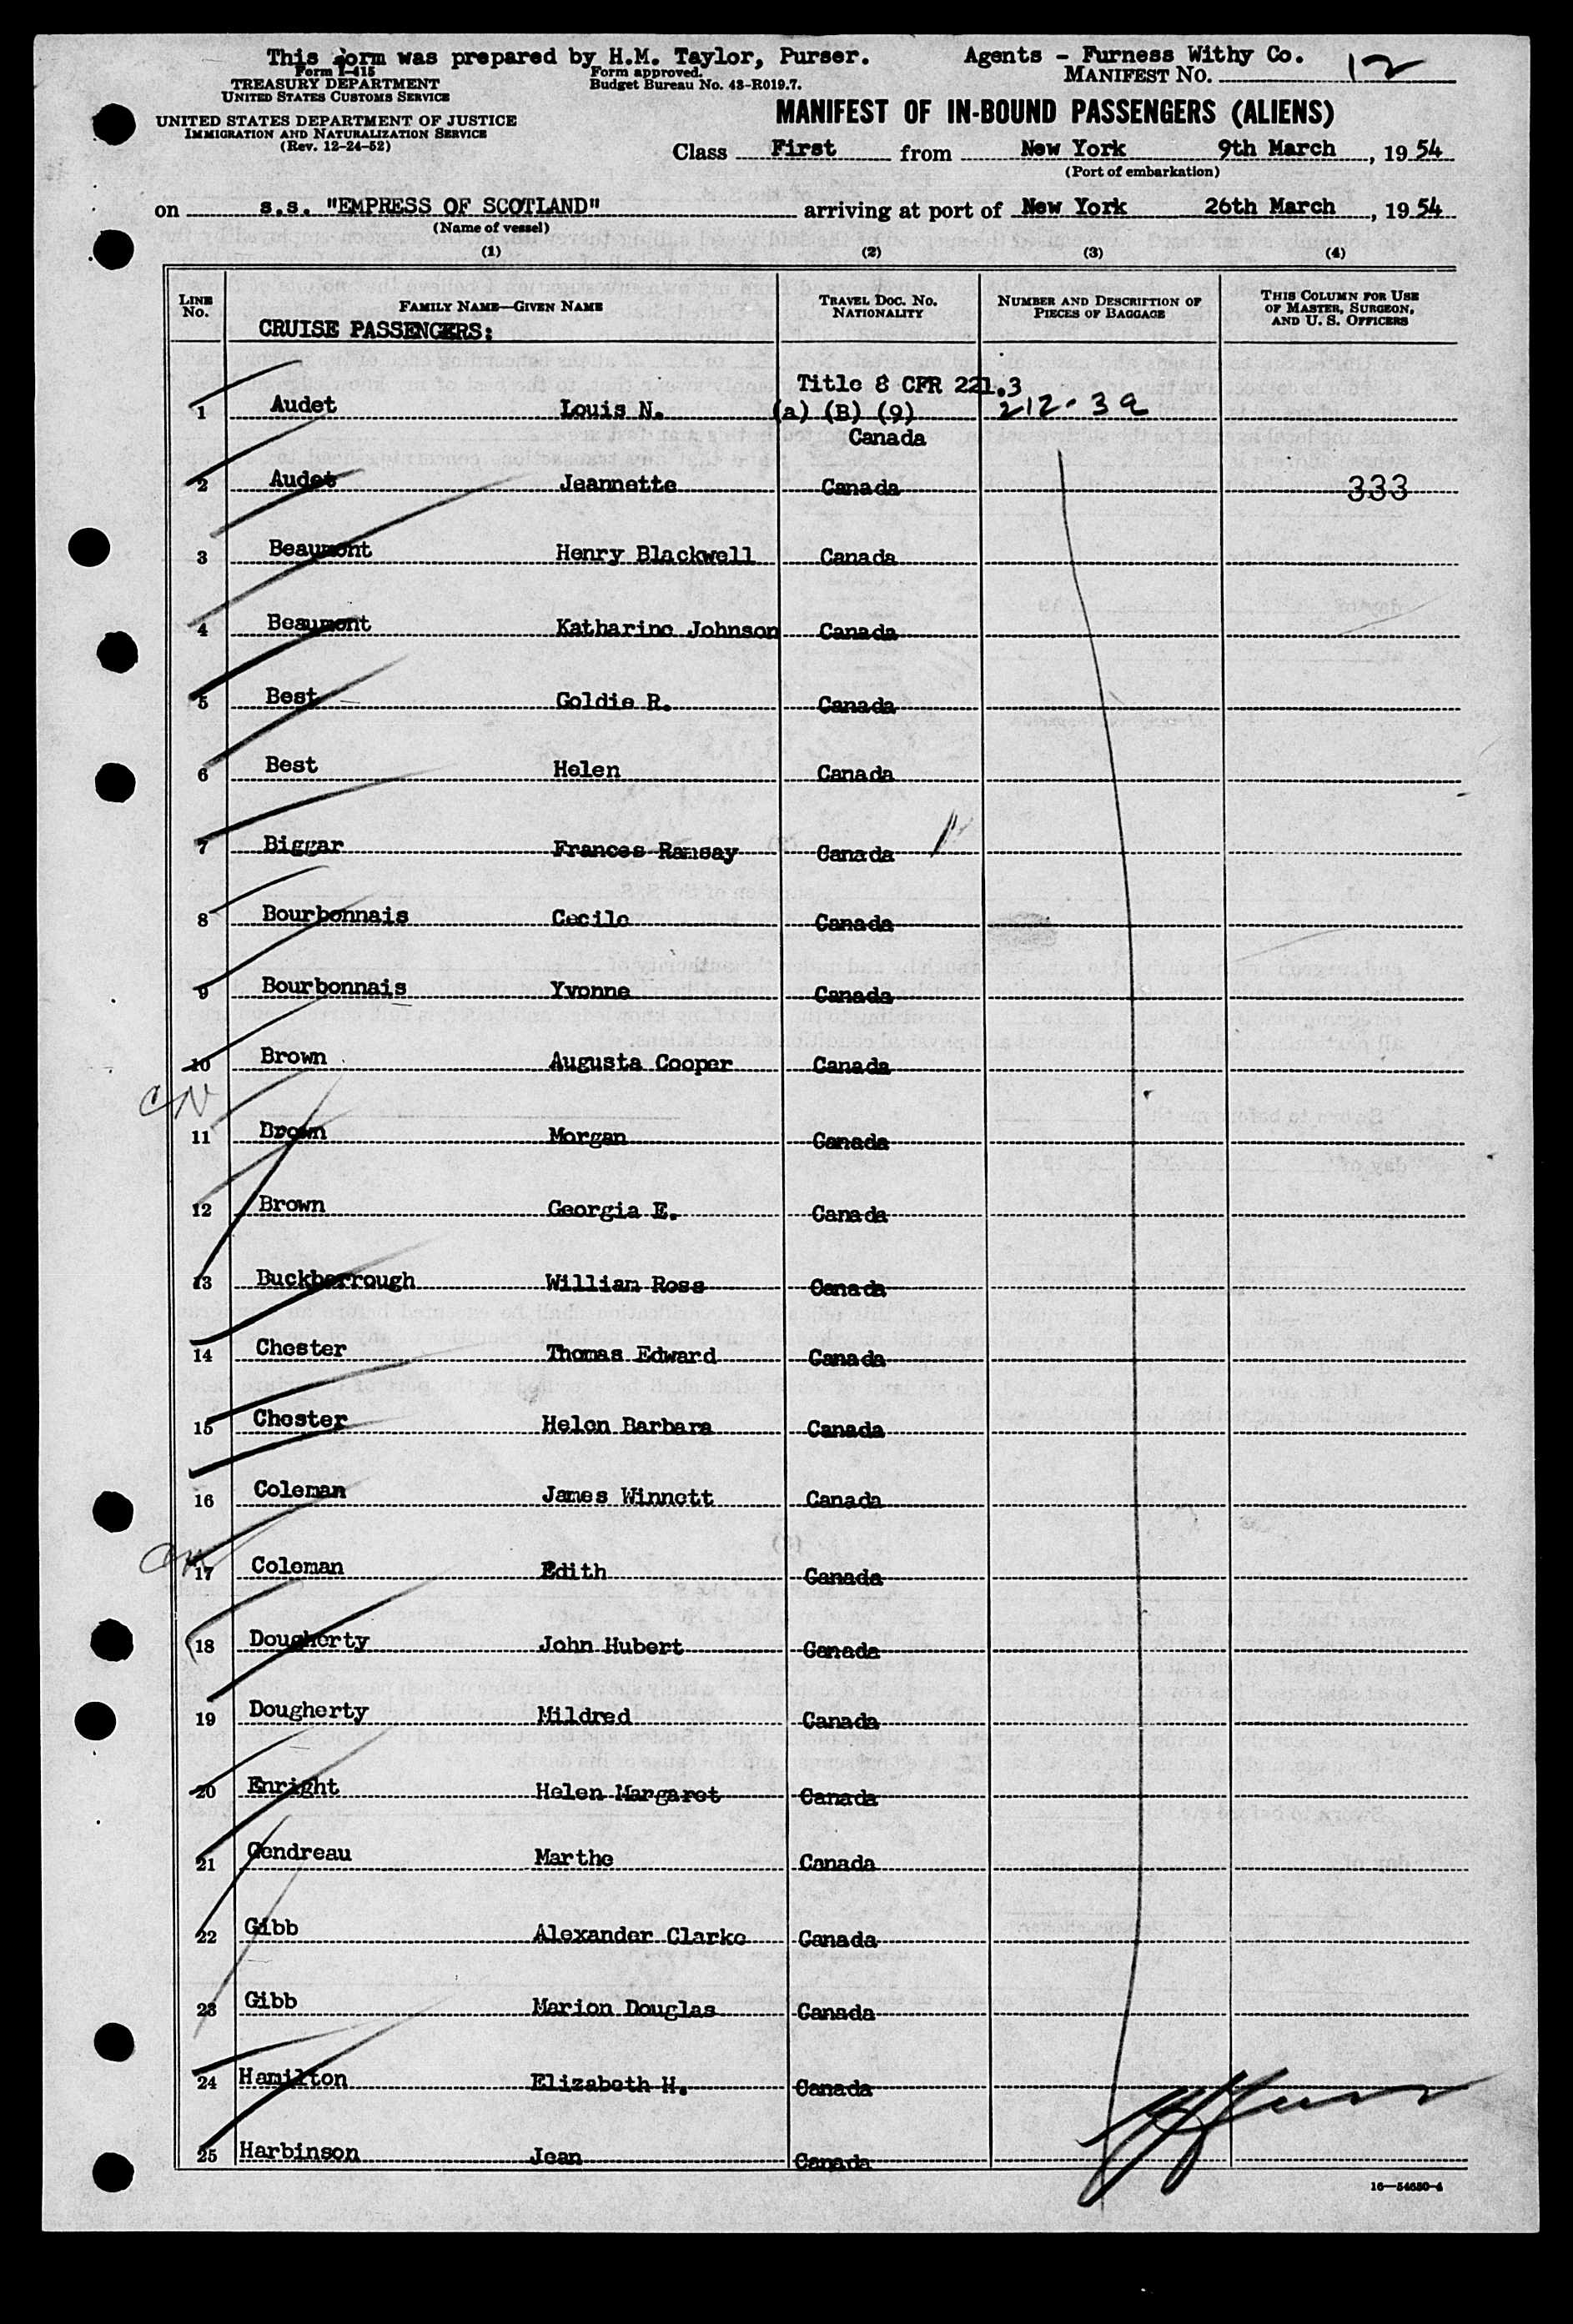 This form was prepared by H.M. Taylor, Purser. Agents - Furness Withy Co.
Form I-415
TREASURY DEPARTMENT
UNITED STATES CUSTOMS SERVICE
UNITED STATES DEPARTMENT OF JUSTICE
IMMIGRATION AND NATURALIZATION SERVICE
(Rev. 12-24-52)
Form approved.
Budget Bureau No. 43-R019.7.
MANIFEST NO. 12
MANIFEST OF IN-BOUND PASSENGERS (ALIENS)
Class First from New York 9th March, 19 54
(Port of embarkation)
on s.s. "EMPRESS OF SCOTLAND" arriving at port of New York 26th March, 19 54
(Name of vessel)
(1) (2) (3) (4)
LINE NO. FAMILY NAME—GIVEN NAME TRAVEL DOC. NO. NATIONALITY NUMBER AND DESCRIPTION OF PIECES OF BAGGAGE THIS COLUMN FOR USE OF MASTER, SURGEON, AND U. S. OFFICERS
CRUISE PASSENGERS:
Title 8 CFR 221.3
1 Audet Louis N. (a) (B) (9) 212-3a
Canada
2 Audet Jeannette Canada 333
3 Beaumont Henry Blackwell Canada
4 Beaumont Katharine Johnson Canada
5 Best Goldie R. Canada
6 Best Helen Canada
7 Biggar Frances Ramsay Canada
8 Bourbonnais Cecile Canada
9 Bourbonnais Yvonne Canada
10 Brown Augusta Cooper Canada
11 Brown Morgan Canada
12 Brown Georgia E. Canada
13 Buckbarrough William Ross Canada
14 Chester Thomas Edward Canada
15 Chester Helen Barbara Canada
16 Coleman James Winnett Canada
17 Coleman Edith Canada
18 Dougherty John Hubert Canada
19 Dougherty Mildred Canada
20 Enright Helen Margaret Canada
21 Gendreau Marthe Canada
22 Gibb Alexander Clarke Canada
23 Gibb Marion Douglas Canada
24 Hamilton Elizabeth H. Canada
25 Harbinson Jean Canada
16—54650-4